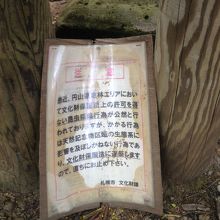 最近、円山原始林エリアにおい
て文化財保護法上の許可を得
ない昆虫採集行為が公然と行
われておりますが、かかる行為
は天然記念物区域の生態系に
影響を及ぼしかねない行為であ
り、文化財保護法に違反します
ので、直ちにお止め下さい。
札幌市 文化財課